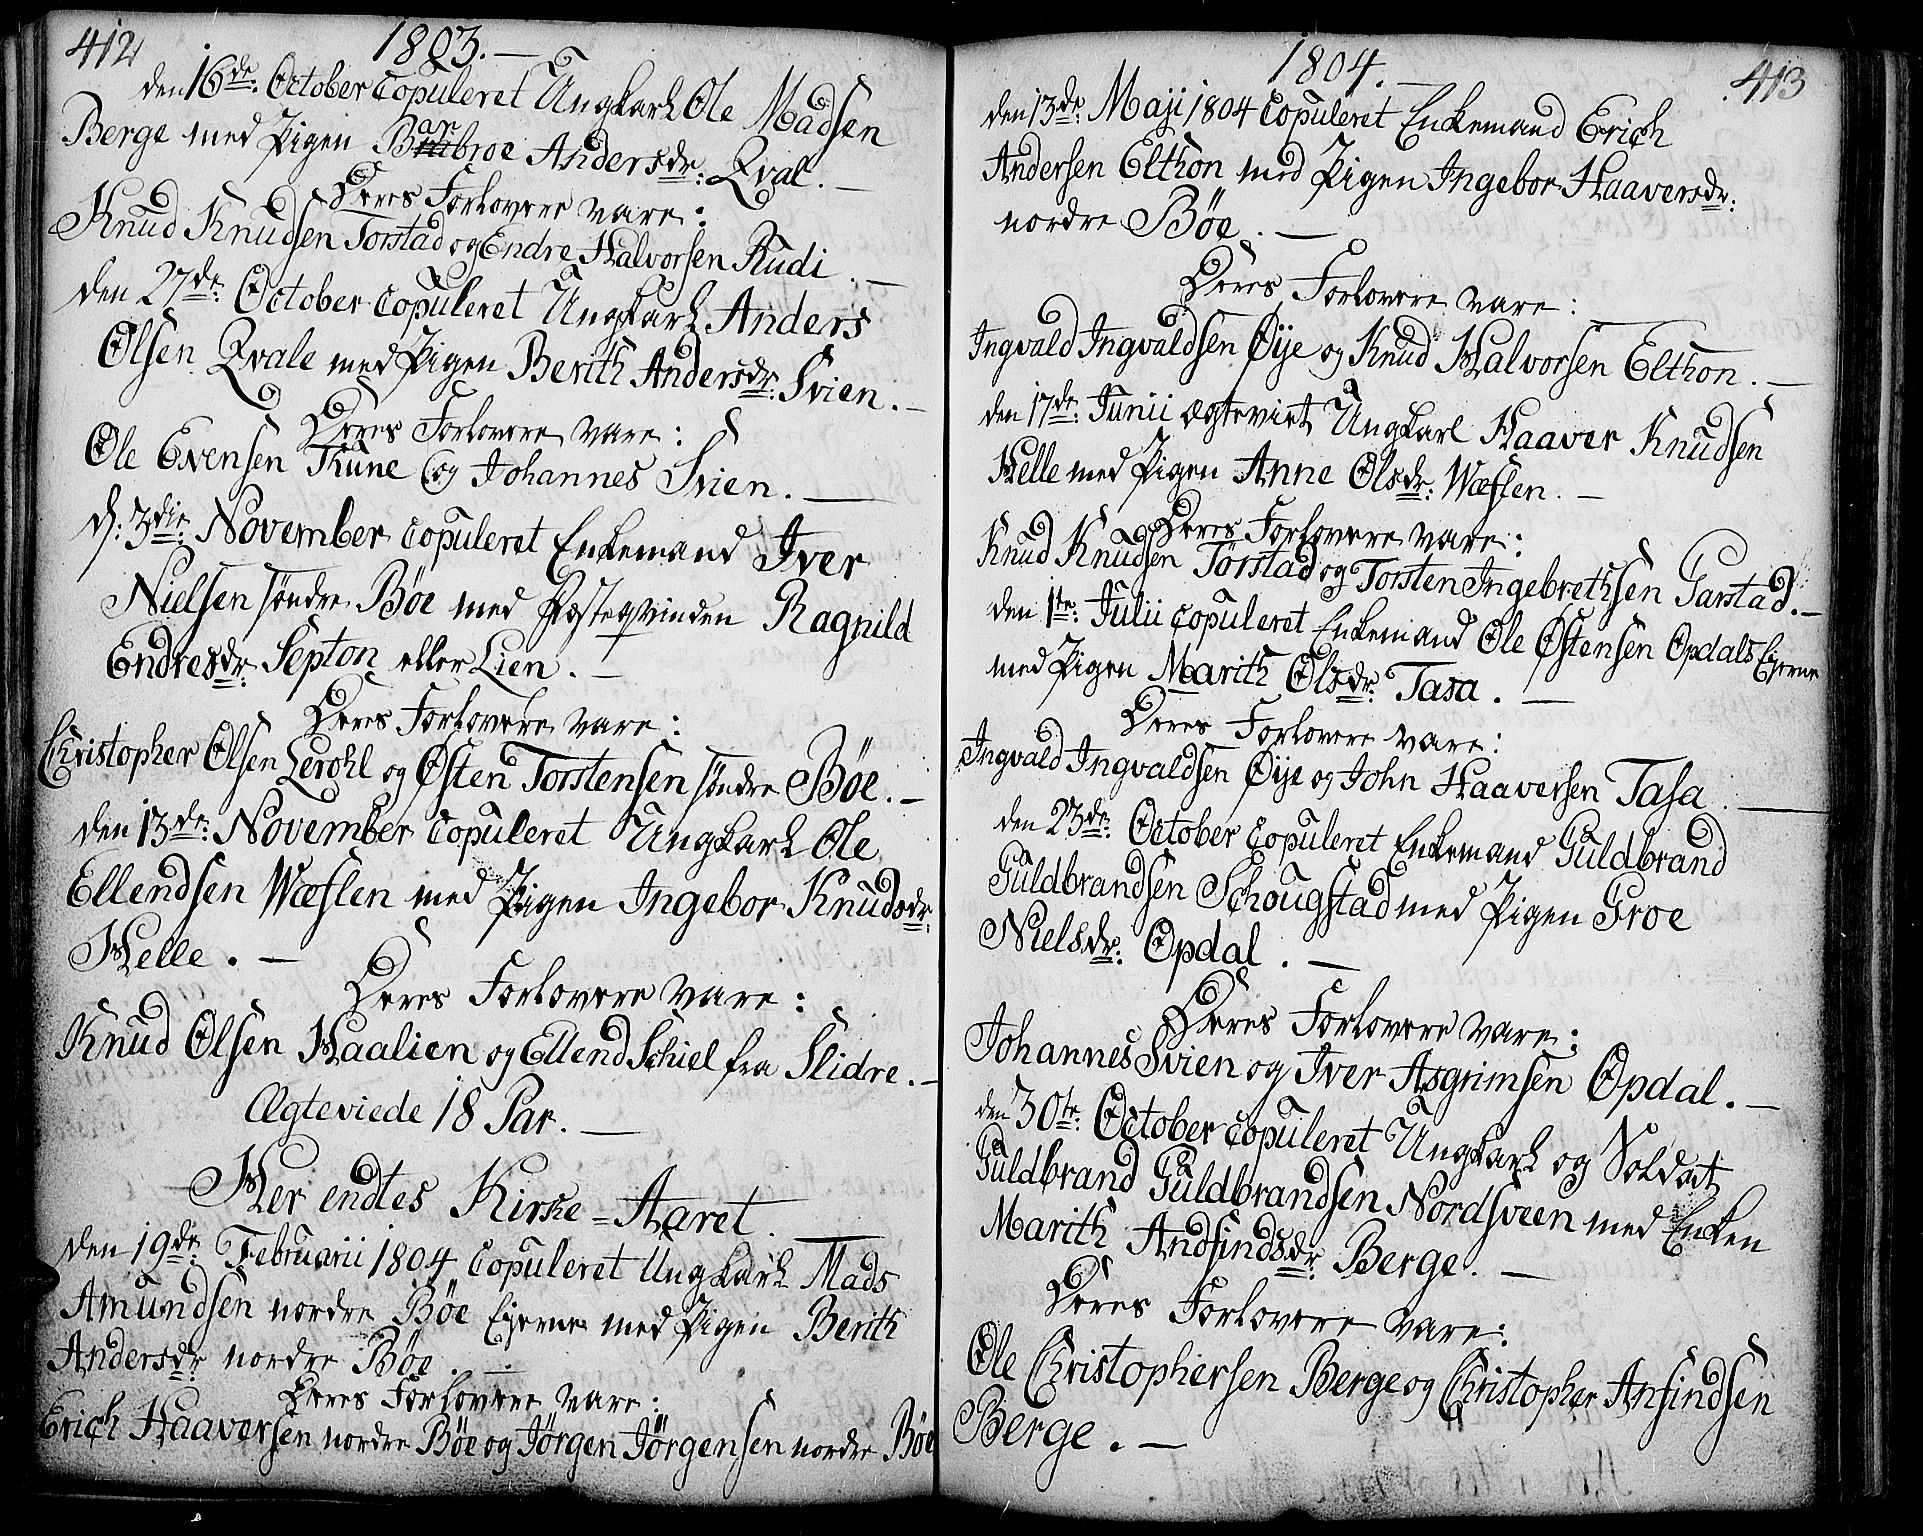 412
1803. —
den 16de October Copuleret Ungkarl Ole Madsen
Berge med Pigen Barbroe Andersdr: Qval. —
Deres Forlovere vare:
Knud Knudsen Torstad og Endre Halvorsen Rudi. —
den 27de October Copuleret Ungkarl Anders
Olsen Qvale med Pigen Berith Andersdr: Svien. —
Deres Forlovere vare:
Ole Evensen Thune og Johannes Svien. —
d: 3die November Copuleret Enkemand Iver
Nielsen søndre Bøe med Festeqvinden Ragnild
Endresdr: Septon eller Lien. —
Deres Forlovere vare:
Christopher Olsen Lerohl og Østen Torstensen søndre Bøe. —
den 13de November Copuleret Ungkarl Ole
Ellendsen Wæslen med Pigen Ingebor Knudsdr:
Helle. —
Deres Forlovere vare:
Knud Olsen Haalien og Ellend Schiel fra Slidre. —
Ægteviede 18 Par. —
Her endtes Kirke-Aaret.
den 19de Februarii 1804 Copuleret Ungkarl Mads
Amundsen nordre Bøe Ejerne med Pigen Berith
Andersdr nordre Bøe. —
Deres Forlovere vare:
Erich Haaversen nordre Bøe og Jørgen Jørgensen nordre Bøe
1804. —
413
den 13de Maji 1804 Copuleret Enkemand Erich
Andersen Elthon med Pigen Ingebor Haaversdr:
nordre Bøe. —
Deres Forlovere vare:
Ingvald Ingvaldsen Øije og Knud Halvorsen Elthon. —
den 17de Junii Ægteviet Ungkarl Haaver Knudsen
Helle med Pigen Anne Olsdr: Wæslen. —
Deres Forlovere vare:
Knud Knudsen Torstad og Torsten Ingebrethsen Garstad. —
den 1te Julii Copuleret Enkemand Ole Østensen Opdals Ejerne
med Pigen Marith Olsdr: Tasa. —
Deres Forlovere vare:
Ingvald Ingvaldsen Øije og John Haaversen Tasa. —
den 23de October Copuleret Enkemand Guldbrand
Guldbrandsen Schougstad med Pigen Groe
Nielsdr: Opdal. —
Deres Forlovere vare:
Johannes Svien og Iver Asgrimsen Opdal. —
den 30te October Copuleret Ungkarl og Soldat
Guldbrand Guldbrandsen Nordsveen med Enken
Marith Andfindsdr Berge. —
Deres Forlovere vare:
Ole Christophersen Berge og Christopher Anfindsen
Berge. —